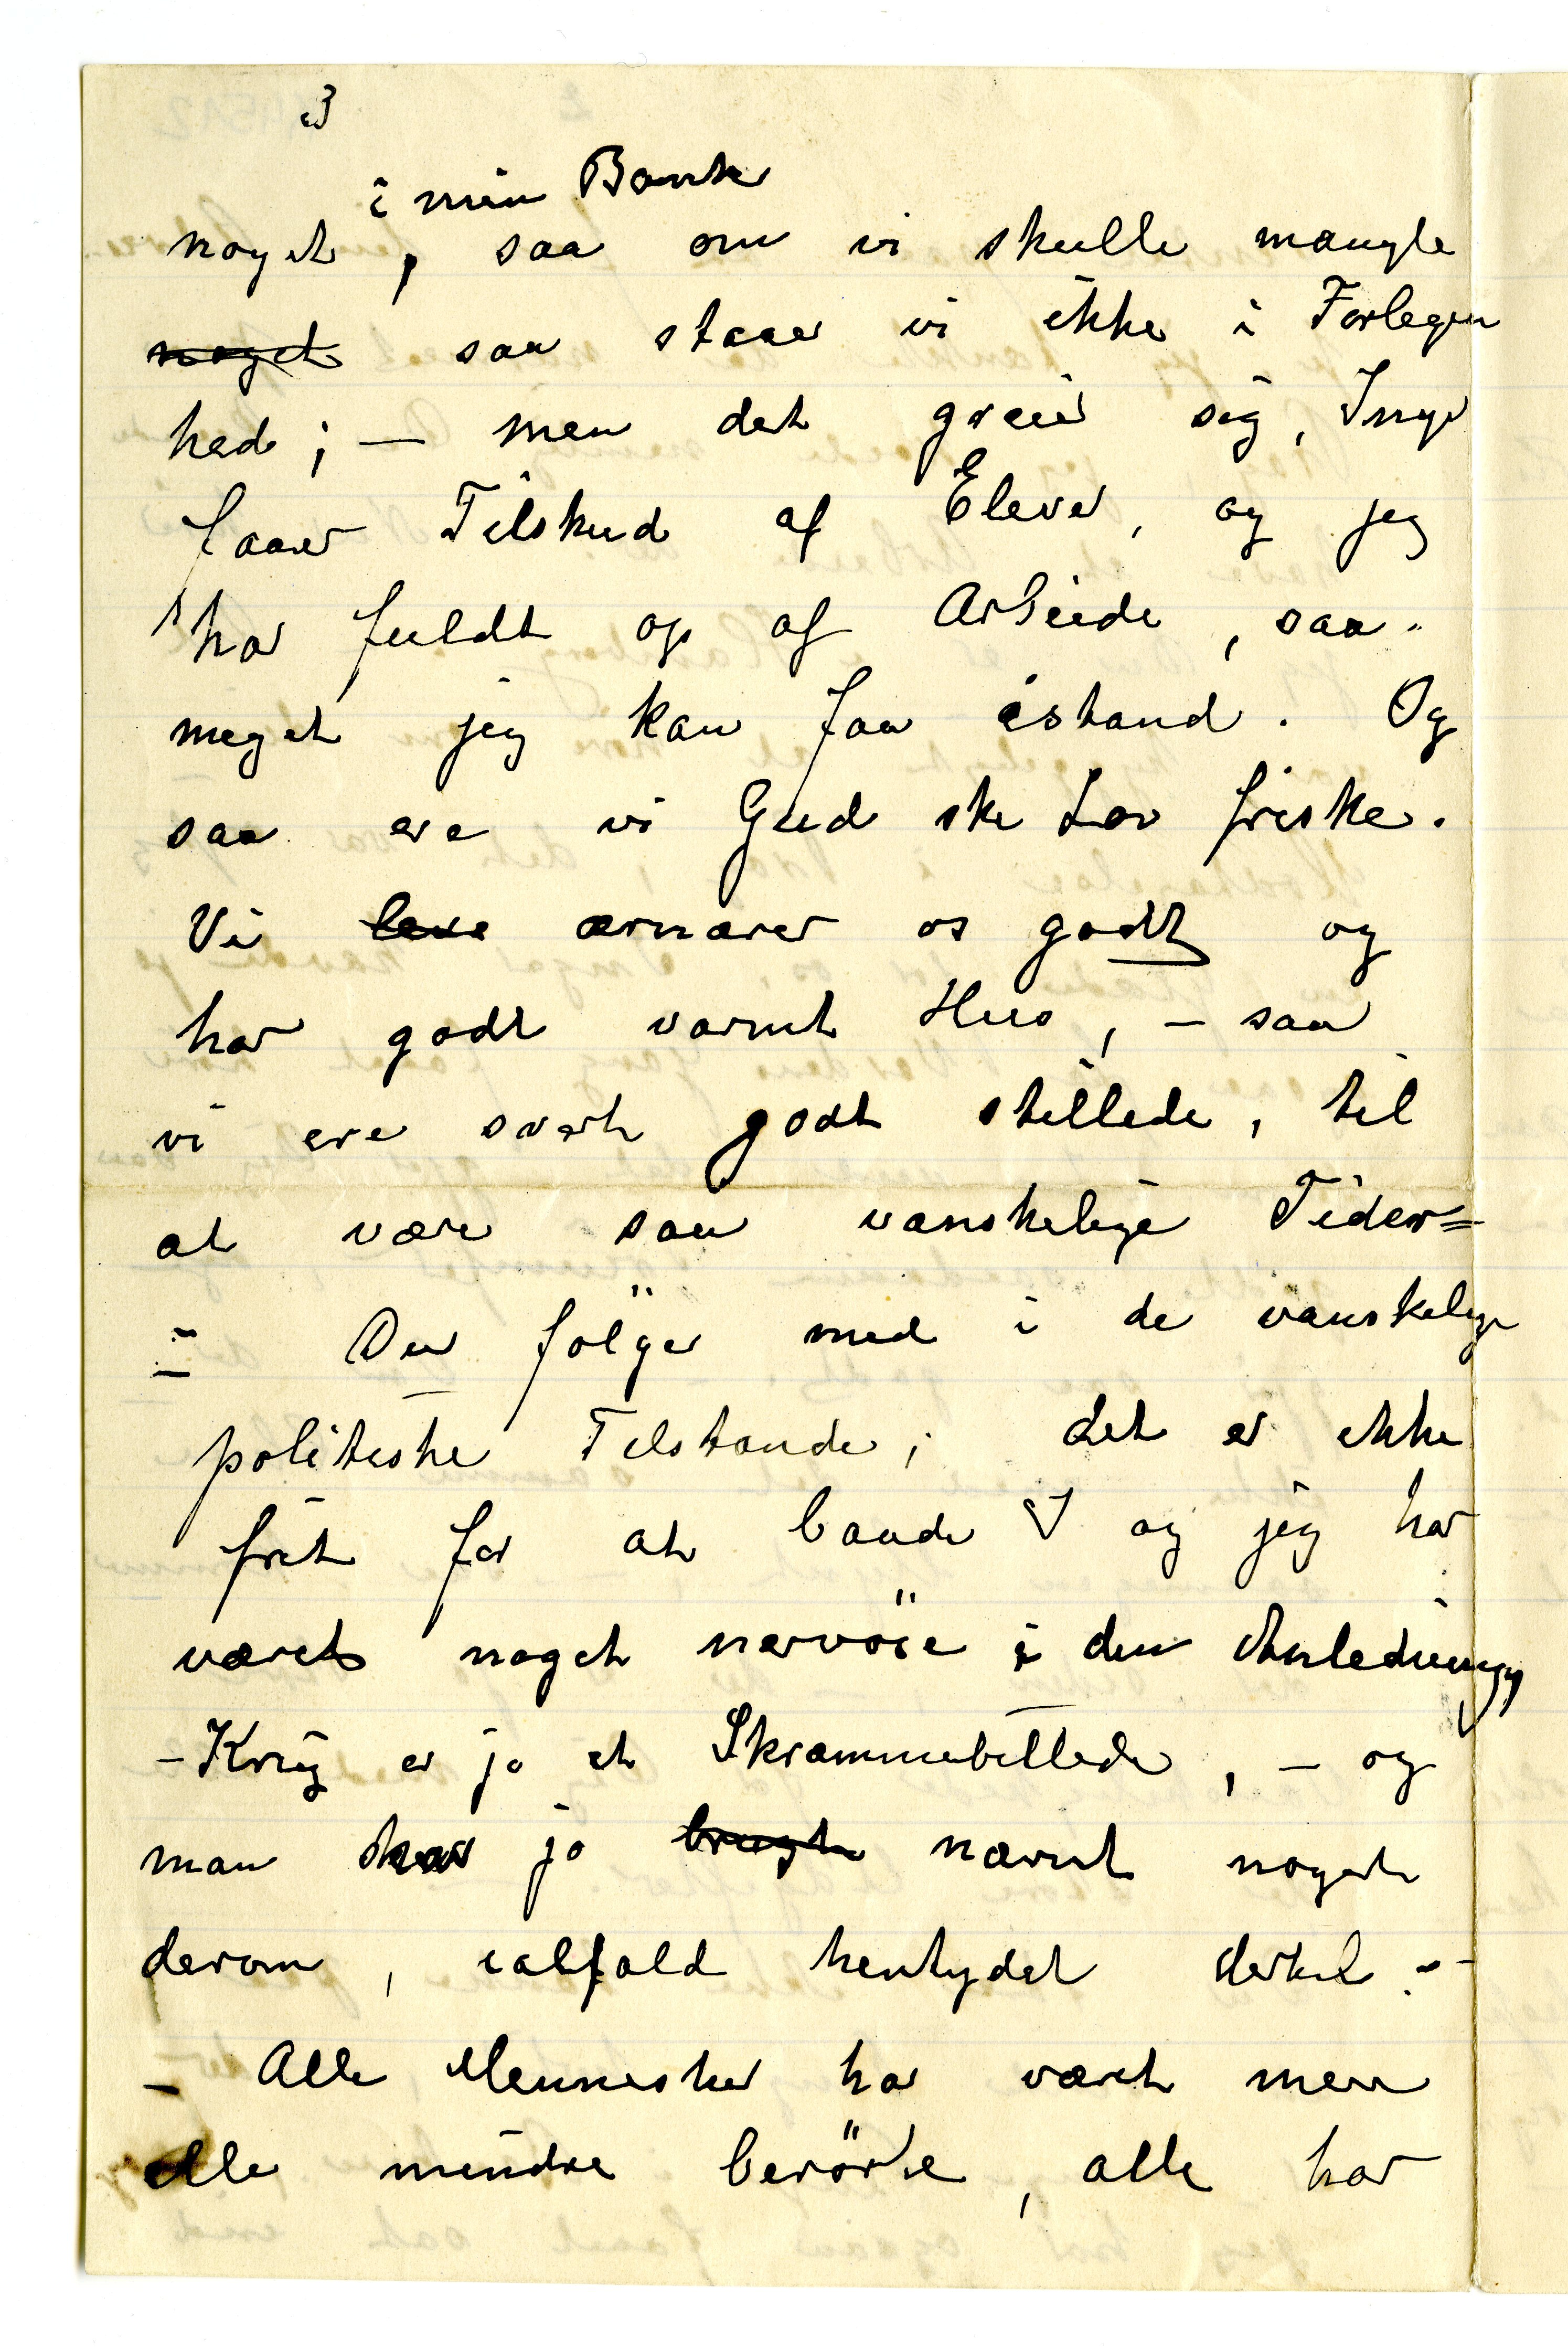 3
i min Bank
noget, saa om vi skulle mangle
noget saa staaer vi ikke i Forlegen
hed; – men det greier sig, Inge
faaer Tilskud af Elever, og jeg
har fuldt op af Arbeide, saa-
meget jeg kan faa istand. Og
saa ere vi Gud ske Lov friske.
Vi leve ernærer os godt og
har godt varmt Hus, – saa
vi ere svært godt stillede, til
at være saa vanskelige Tider=
= Du fölger med i de vanskelige
politiske Tilstande; det er ikke
frit for at baade I og jeg har
været noget nervöse i den Anledning
– Krig er jo et Skræmmebillede, – og
man har jo brugt nævnt noget
derom, ialfald hentydet dertil. –
– Alle Mennesker har været mere
elle mindre berörte, alle har